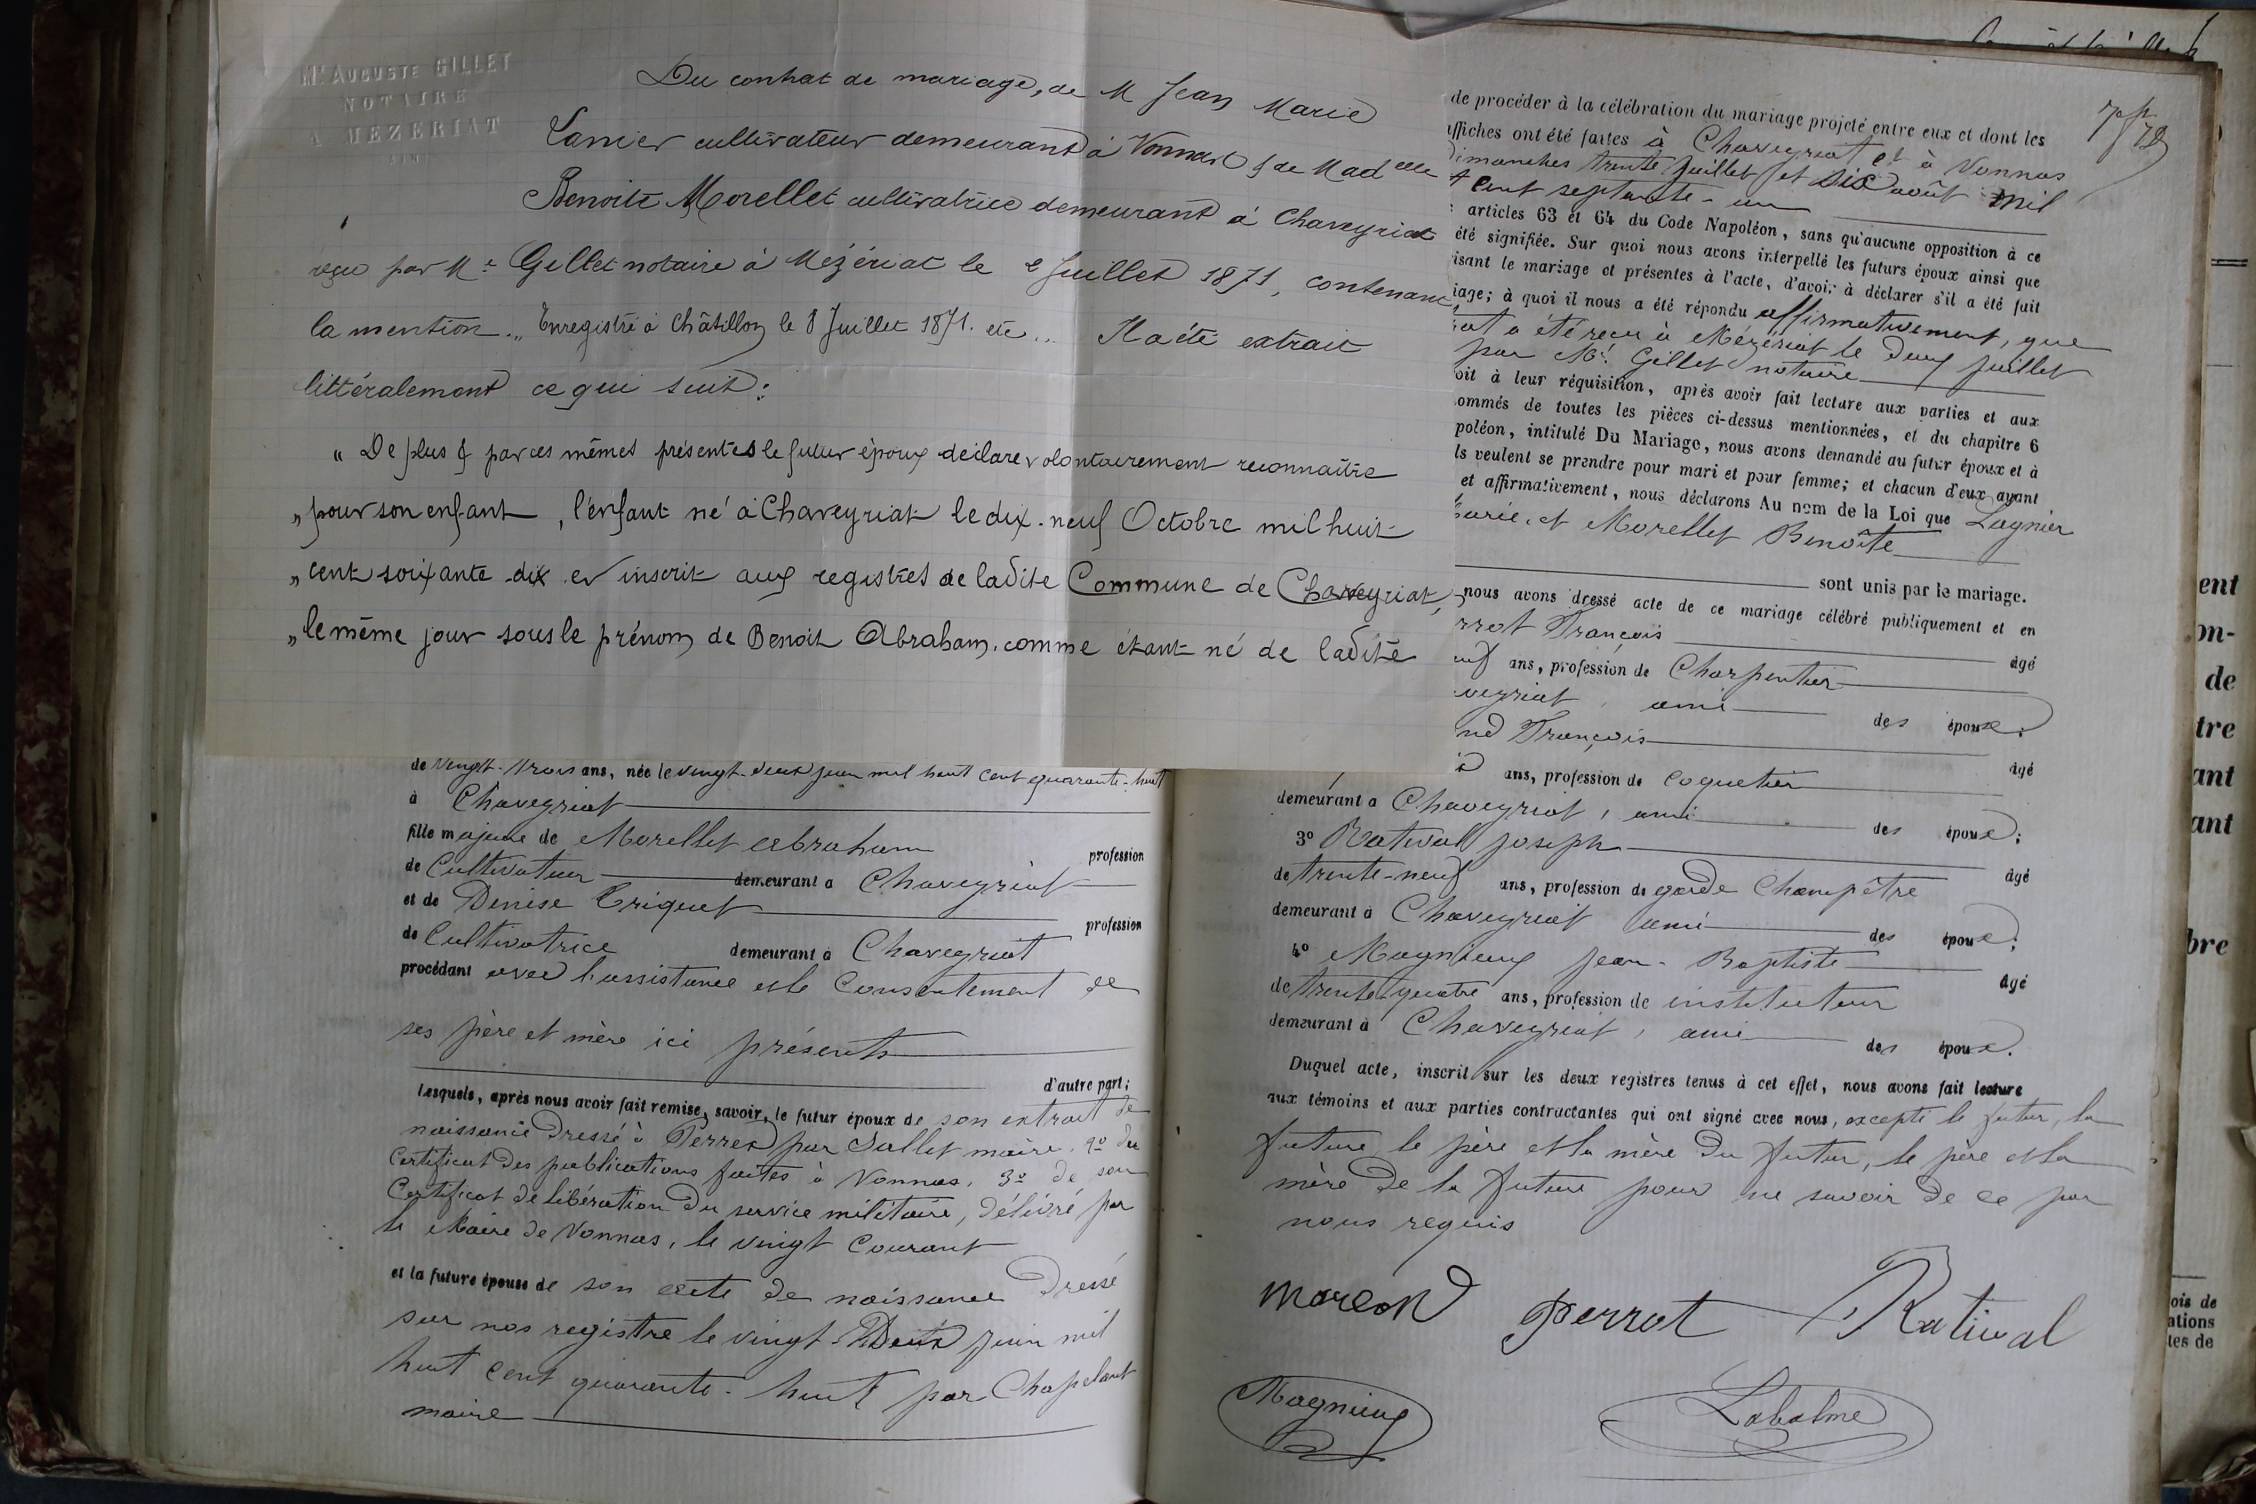 Me AUGUSTE GILLET
NOTAIRE
A MEZERIAT
AIN
Du contrat de mariage, de M Jean Marie
Lanier cultivateur demeurant à Vonnas & de Madelle
Benoite Morellet cultivatrice demeurant à Chaveyriat
reçu par Me Gillet notaire à Mézériat le 2 Juillet 1871, contenant
la mention „ Enregistré à Châtillon le 8 Juillet 1871. etc .. Il a été extrait
littéralement ce qui suit:
" De plus & par ces mêmes présentes le futur époux déclare volontairement reconnaître
„ pour son enfant, l'enfant né à Chaveyriat le dix-neuf Octobre mil huit
„ cent soixante dix et inscrit aux registres de ladite Commune de Chaveyriat,
„ le même jour sous le prénom de Benoit Abraham. comme étant né de ladite
de vingt-trois ans, née le vingt-deux juin mil huit cent quarante-huit
à Chaveyriat
fille majeure de Morellet Abraham profession
de Cultivateur demeurant à Chaveyriat
et de Denise Triquet profession
de Cultivatrice demeurant à Chaveyriat
procédant avec l'assistance et le Consentement de
ses père et mère ici présents
d'autre part;
Lesquels, après nous avoir fait remise, savoir, le futur époux de son extrait de
naissance dressé à Perrex par Sallet maire. 2º du
Certificat des publications faites à Vonnas, 3º de son
Certificat de libération du service militaire, délivré par
le Maire de Vonnas, le vingt Courant
et la future épouse de son acte de naissance dressé
sur nos registre le vingt-Deux juin mil
huit cent quarante-huit par Chapelant
maire
de procéder à la célébration du mariage projeté entre eux et dont les
affiches ont été faites à Chaveyriat et à Vonnas
dimanches trente juillet et six août mil
t cent septante-un
articles 63 et 64 du Code Napoléon, sans qu'aucune opposition à ce
été signifiée. Sur quoi nous avons interpellé les futurs époux ainsi que
isant le mariage et présentes à l'acte, d'avoir à déclarer s'il a été fait
iage; à quoi il nous a été répondu affirmativement, que
rat a été reçu à Mézériat le deux juillet
par Me Gillet notaire
oit à leur réquisition, après avoir fait lecture aux parties et aux
ommés de toutes les pièces ci-dessus mentionnées, et du chapitre 6
poléon, intitulé Du Mariage, nous avons demandé au futur époux et à
ls veulent se prendre pour mari et pour femme; et chacun d'eux ayant
et affirmativement, nous déclarons Au nom de la Loi que Lagnier
Marie, et Morellet Benoîte
sont unis par le mariage.
nous avons dressé acte de ce mariage célébré publiquement et en
rrot François âgé
uf ans, profession de Charpentier
veyriat, ami des époux;
nd François âgé
ans, profession de Coquetier
demeurant à Chaveyriat, ami des époux;
3º Ratival Joseph âgé
de trente-neuf ans, profession de garde Champêtre
demeurant à Chaveyriat ami des époux;
4º Magnieux Jean-Baptiste âgé
de trente-quatre ans, profession de instituteur
demeurant à Chaveyriat, ami des époux.
Duquel acte, inscrit sur les deux registres tenus à cet effet, nous avons fait lecture
aux témoins et aux parties contractantes qui ont signé avec nous, excepté le futur, la
future le père et la mère du futur, le père et la
mère de la future pour ne savoir de ce par
nous requis
Perrot Ratival
Magnieux Labalme
ent
on-
de
tre
ant
ant
bre
ois de
ations
tes de